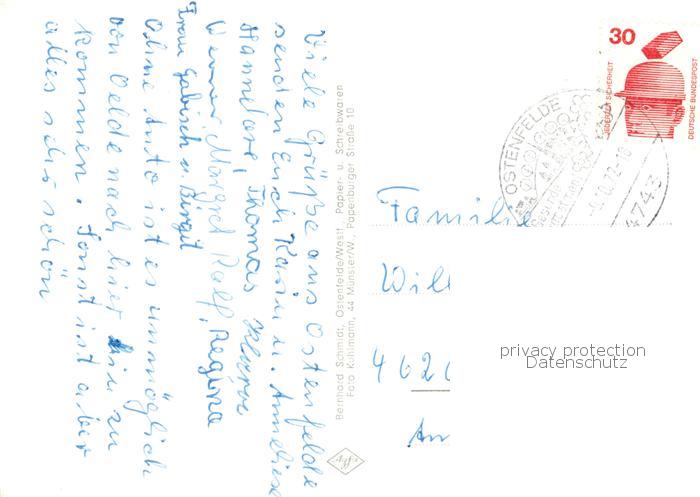 Viele Grüße aus Ostenfelde
senden Euch Karin u. Anneliese
Hannelore, Thomas Klaine
Werner Margret Ralf, Regina
Frau Gabisch u. Birgit
Ohne Auto ist es unmöglich
von Oelde nach hier hin zu
kommen. Sonst ist aber
alles sehr schön
Bernhard Schmidt, Ostenfelde/Westf., Papier- u. Schreibwaren
Foto Kuhlmann, 44 Münster/W., Papenburger Straße 10
30
JEDERZEIT SICHERHEIT
DEUTSCHE BUNDESPOST
OSTENFELDE
4743
Familie
Will
462
An
privacy protection
Datenschutz